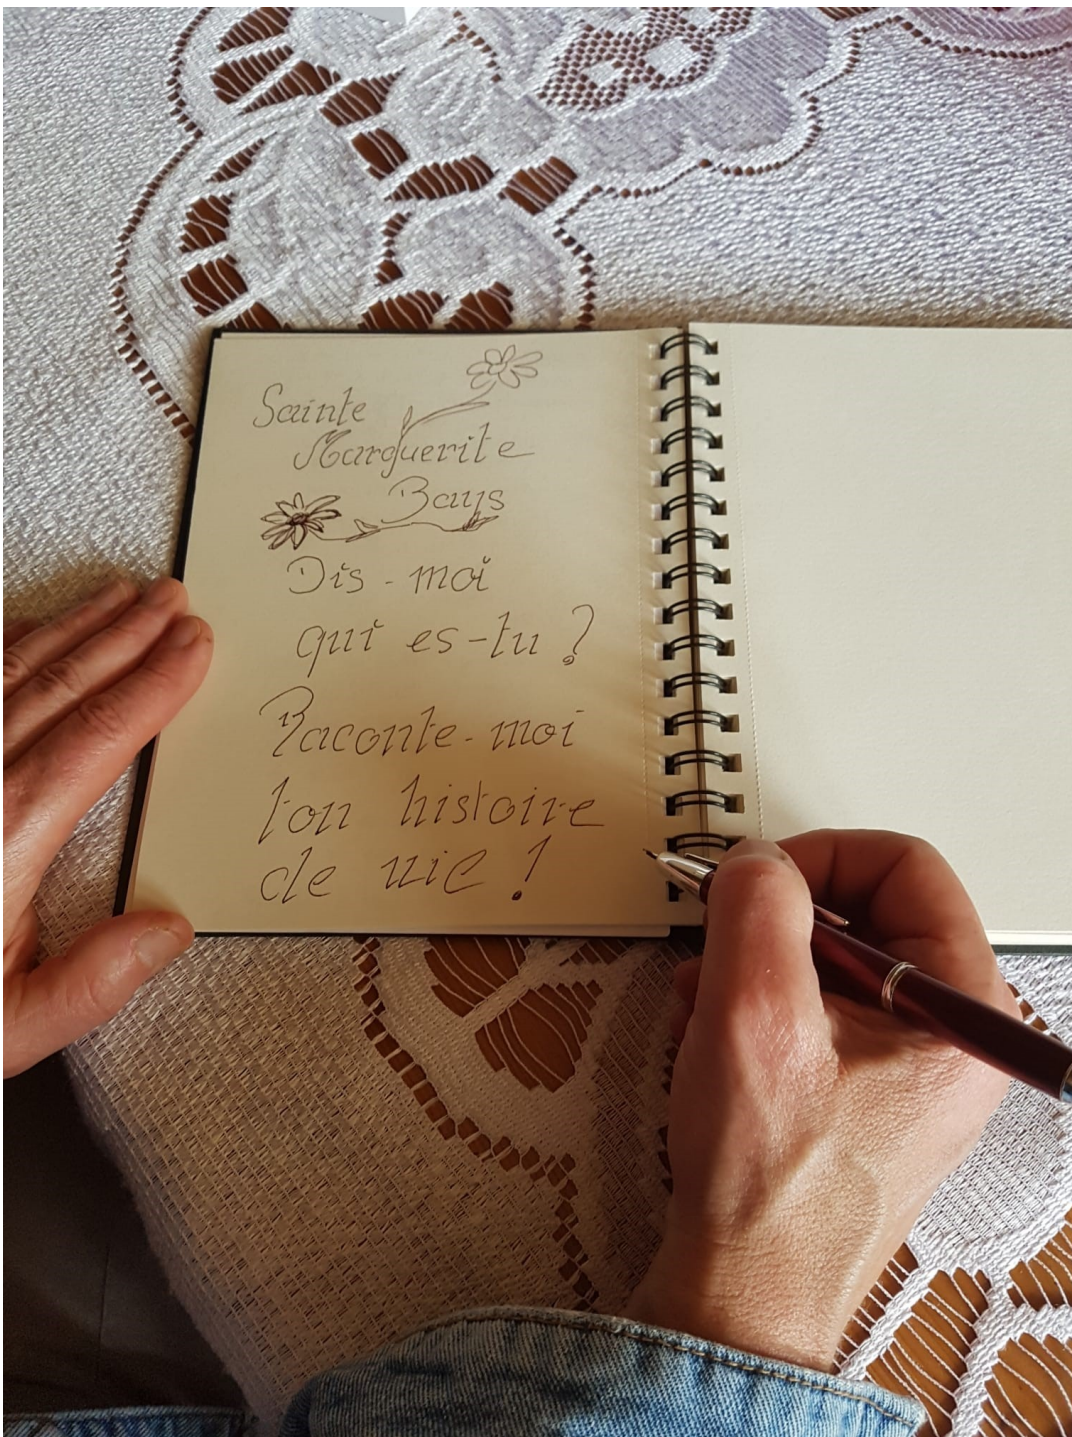 Sainte
Marguerite
Bays
Dis-moi
qui es-tu ?
Raconte-moi
ton histoire
de vie !